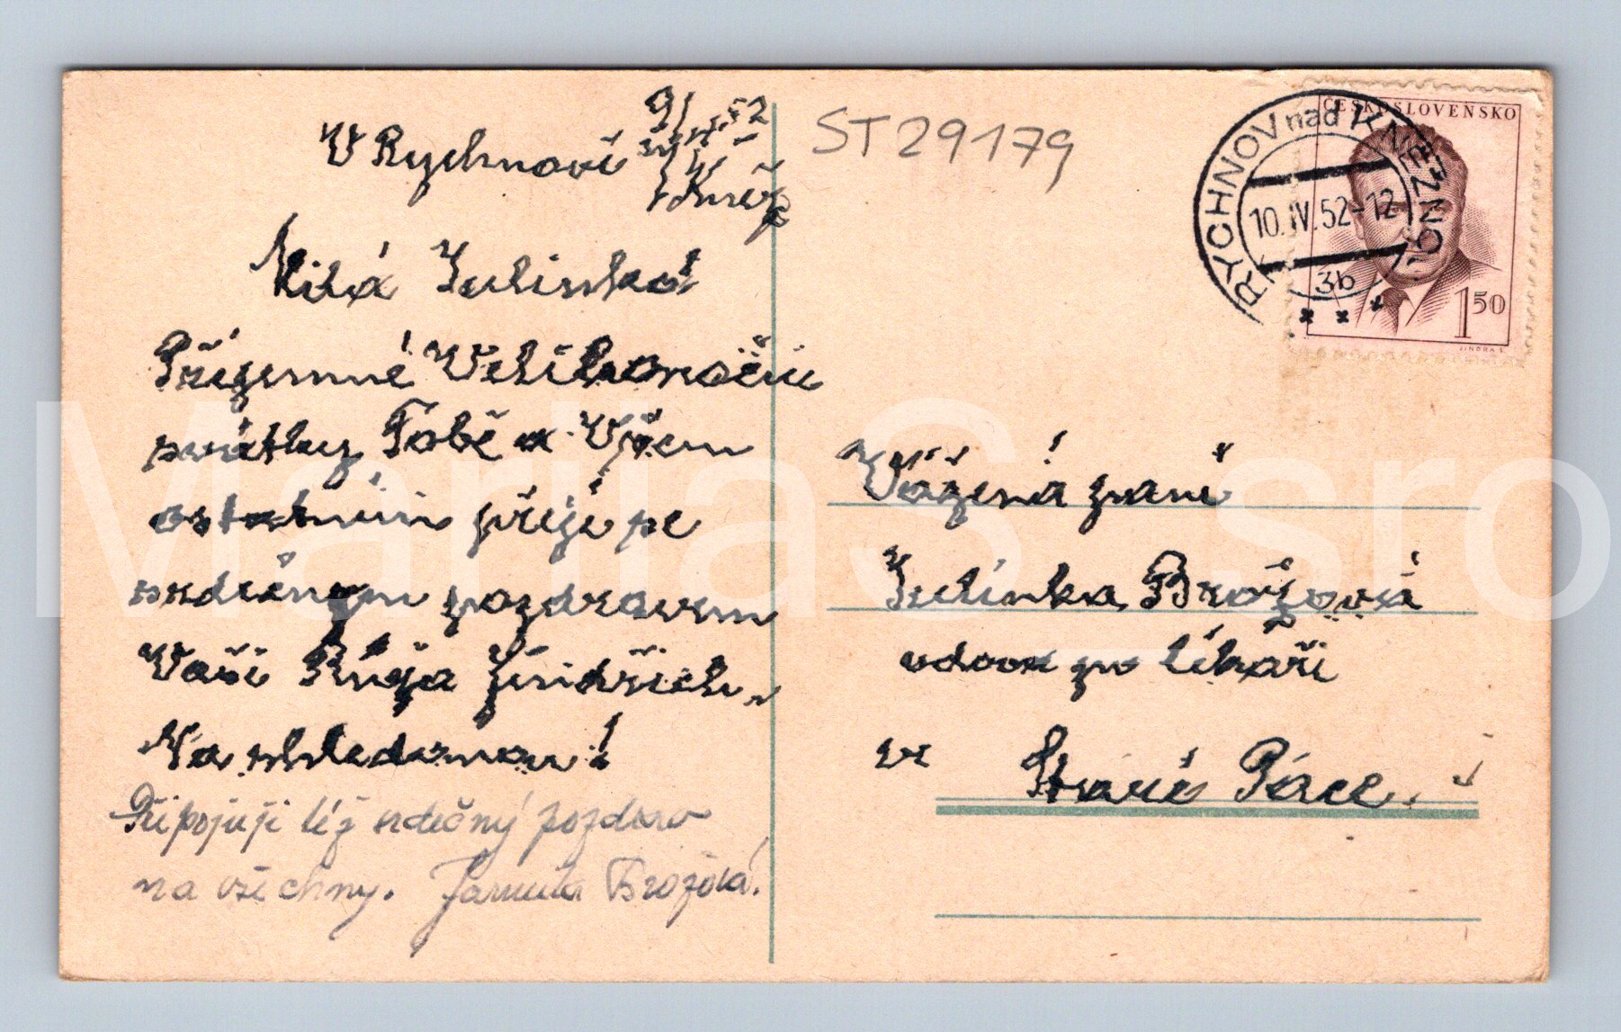 V Rychnově 9/IV. 52
n/Kněž
Milá Julinko!
Příjemné Velikonoční
svátky Tobě a Všem
ostatním přeji se
srdečným pozdravem
Vaši Růža Jindřich.
Na shledanou!
Připojuji též srdečný pozdrav
na všechny. Jarmila Brožová.
ST29179
RYCHNOV nad KNĚŽNOU
10.IV.52-12
3b
ČESKOSLOVENSKO
1 50
Vážená paní
Julinka Brožová
vdova po lékaři
ve Staré Pace.
MarilaS sro